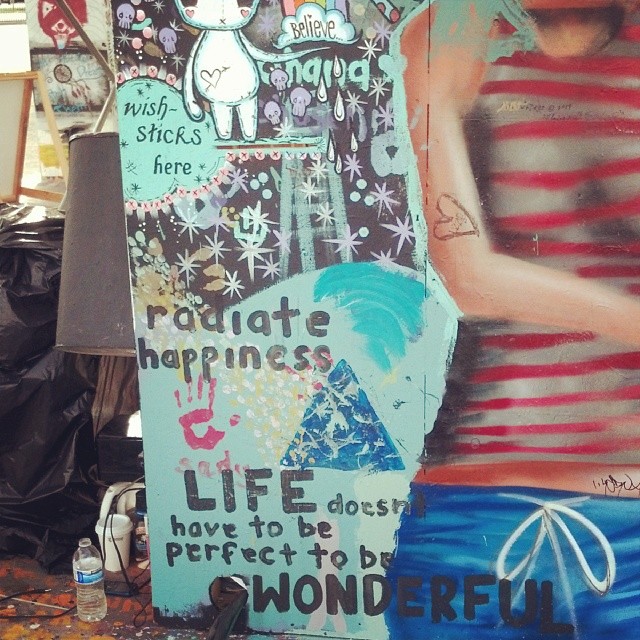 Believe
wish-
sticks
here
radiate
happiness
sady
LIFE doesn't
have to be
perfect to be
WONDERFUL